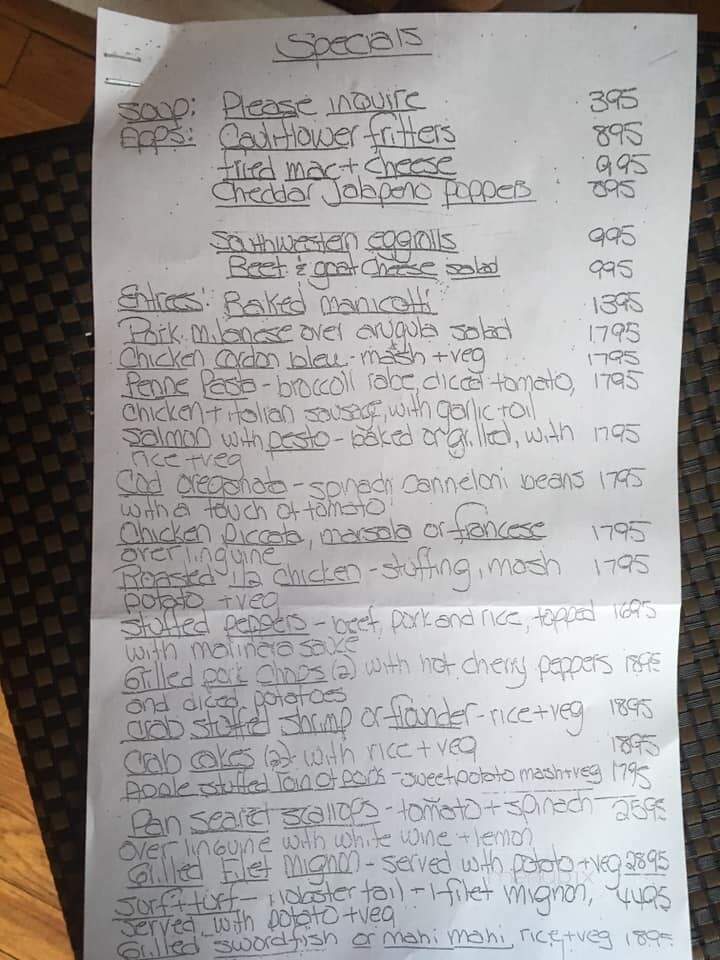 Specials
Soup: Please inquire 395
Apps: Cauliflower fritters 895
fried mac + cheese 995
Cheddar Jalapeno poppers 895
Southwestern eggrolls 995
Beet & goat cheese salad 995
Entrees: Baked manicotti 1395
Pork milanese over arugula salad 1795
Chicken cordon bleu - mash + veg 1795
Penne Pasta - broccoli rabe, diced tomato, 1795
chicken + italian sausage, with garlic + oil
Salmon with pesto - baked or grilled, with 1795
rice + veg
Cod oreganata - spinach canneloni beans 1795
with a touch of tomato
Chicken piccata, marsala or francese 1795
over linguine
Roasted 1/2 chicken - stuffing, mash 1795
potato + veg
Stuffed peppers - beef, pork and rice, topped 1695
with marinara sauce
Grilled pork chops (2) with hot cherry peppers 1895
and diced potatoes
Crab stuffed shrimp or flounder - rice + veg 1895
Crab cakes (2) - with rice + veg 1895
Apple stuffed loin of pork - sweet potato mash + veg 1795
Pan seared scallops - tomato + spinach 2595
over linguine with white wine + lemon
Grilled Filet Mignon - served with potato + veg 2895
Surf + turf - 1 lobster tail + 1 filet mignon, 4495
served with potato + veg
Grilled swordfish or mahi mahi, rice + veg 1895